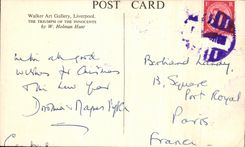 POST CARD
Walker Art Gallery, Liverpool.
THE TRIUMPH OF THE INNOCENTS
by W. Holman Hunt
with all good
wishes for Christmas
& the New Year
Bertrand
Square
Port Royal
Paris
France